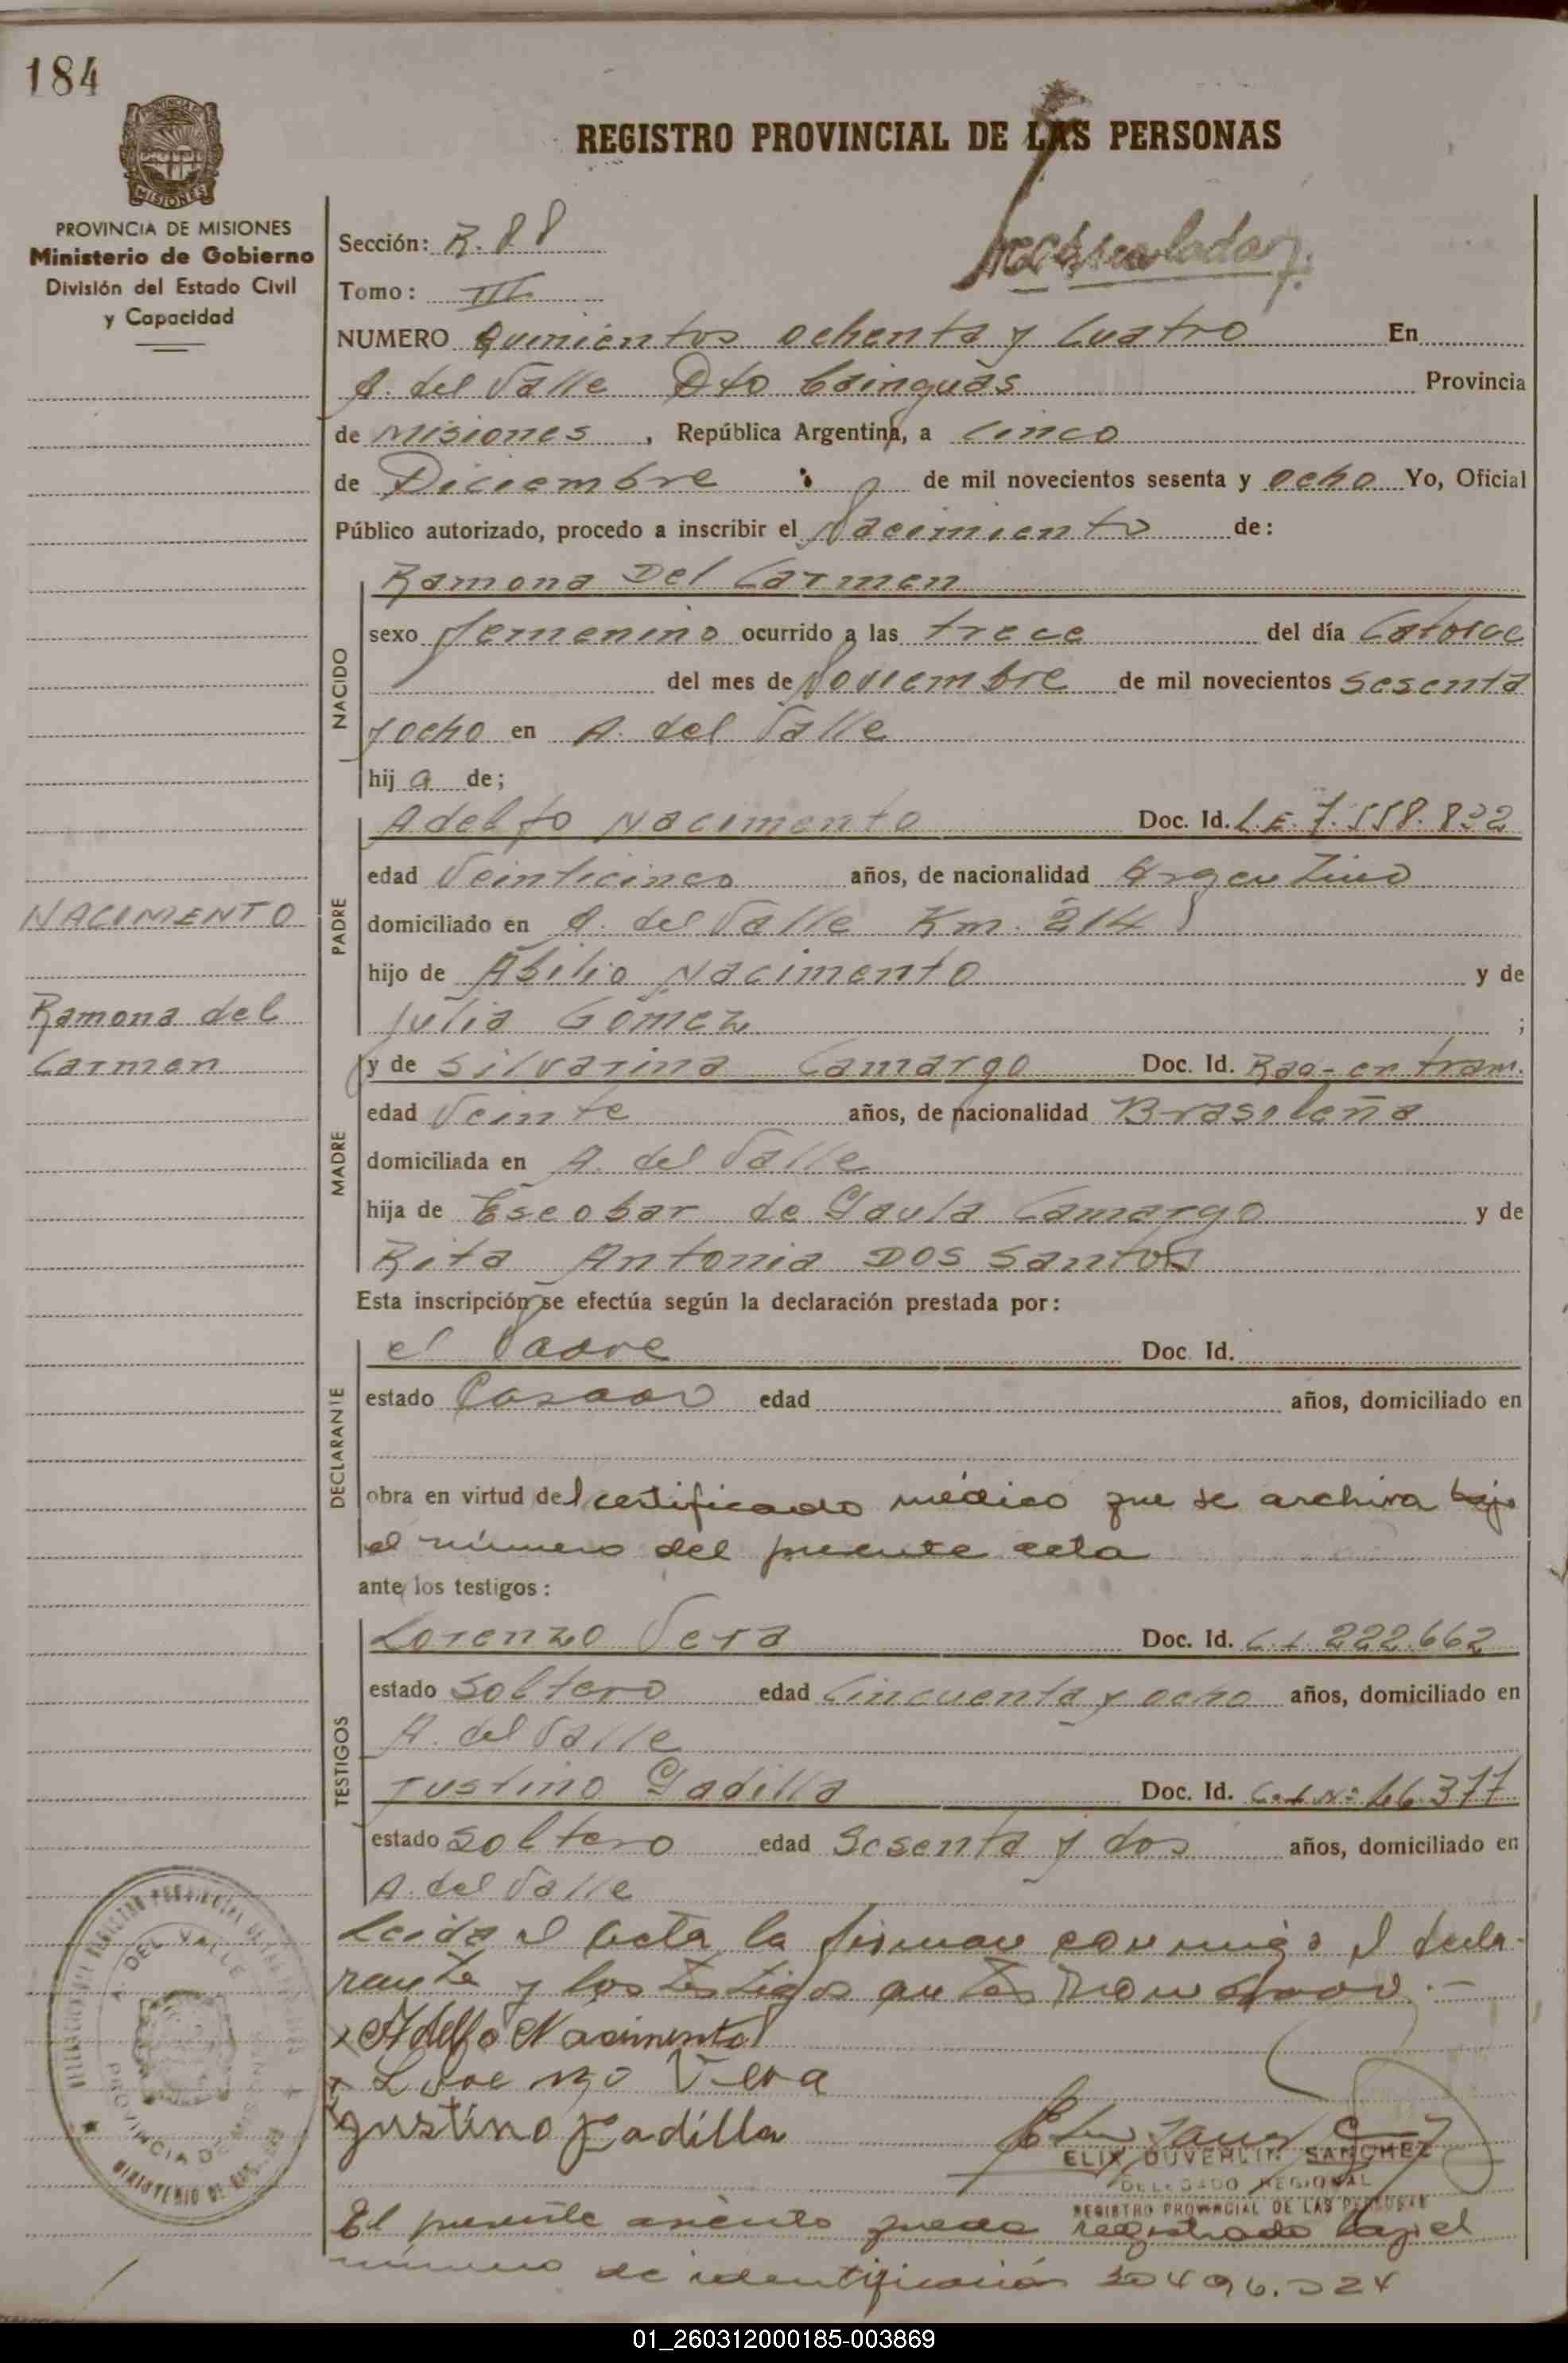 184
REGISTRO PROVINCIAL DE LAS PERSONAS
PROVINCIA DE MISIONES
Ministerio de Gobierno
División del Estado Civil
y Capacidad
Sección: R. 88
Tomo: III
NUMERO Quinientos ochenta y Cuatro En
A. del Valle Dto Cainguás Provincia
de Misiones, República Argentina, a Cinco
de Diciembre de mil novecientos sesenta y ocho Yo, Oficial
Público autorizado, procedo a inscribir el Nacimiento de:
NACIDO
Ramona Del Carmen
sexo femenino ocurrido a las trece del día Catorce
del mes de Noviembre de mil novecientos sesenta
y ocho en A. del Valle
hija de;
PADRE
Adelfo Nacimento Doc. Id. L.E. 7.558.832
edad Veinticinco años, de nacionalidad Argentino
domiciliado en A. del Valle Km. 214
hijo de Abilio Nacimento y de
Julia Gomez ;
NACIMENTO
Ramona del
Carmen
MADRE
y de Silvarina Camargo Doc. Id. Rao- en tram.
edad Veinte años, de nacionalidad Brasileña
domiciliada en A. del Valle
hija de Escobar de Paula Camargo y de
Rita Antonia Dos Santos
Esta inscripción se efectúa según la declaración prestada por:
DECLARANTE
el Padre Doc. Id.
estado Casado edad años, domiciliado en
obra en virtud del certificado médico que se archiva bajo
el número del presente acta
ante los testigos:
TESTIGOS
Lorenzo Vera Doc. Id. C.I. 222.662
estado Soltero edad Cincuenta y ocho años, domiciliado en
A. del Valle
Justino Padilla Doc. Id. C.I. Nº 46.377
estado Soltero edad Sesenta y dos años, domiciliado en
A. del Valle
Leida el acta la firman conmigo el decla-
rante y los testigos antes nombrados.-
x Adelfo Nacimento
x Lorenzo Vera
Justino Padilla
ELIX DUVERLIN SANCHEZ
DELEGADO REGIONAL
REGISTRO PROVINCIAL DE LAS PERSONAS
El presente asiento queda registrado bajo el
número de identificación 20496.324
A. DEL VALLE
PROVINCIA DE MISIONES
MINISTERIO DE GOBIERNO
01_260312000185-003869